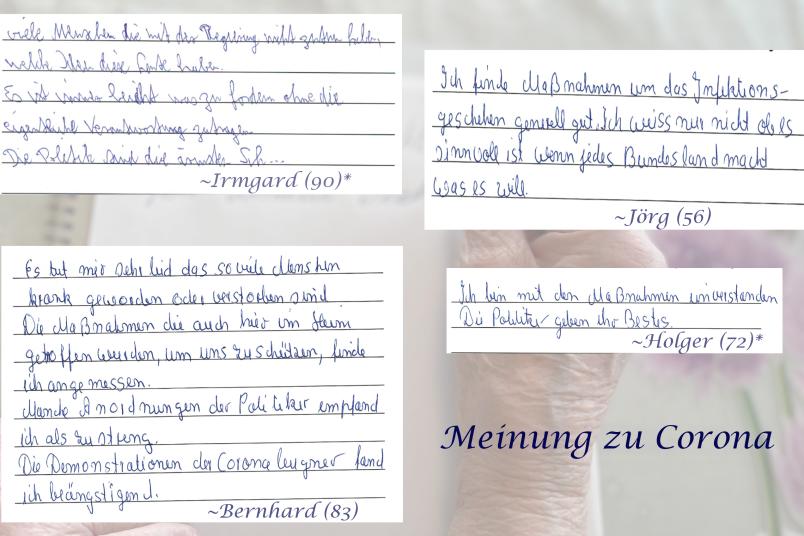 viele Menschen die mit der Regierung nicht zufrieden,
welche Ideen diese Leute haben.
Es ist immer leicht was zu fordern ohne die
eigentliche Verantwortung zutragen
Die Politik sind die ärmsten Sch...
~Irmgard (90)*
Ich finde Maßnahmen um das Infektions-
geschehen generell gut. Ich weiss nur nicht ob es
sinnvoll ist wenn jedes Bundesland macht
was es will.
~Jörg (56)
Es tut mir sehr leid das so viele Menshen
krank geworden oder verstorben sind
Die Maßnahmen die auch hier im Heim
getroffen wurden, um uns zu schützen, finde
ich angemessen.
Manche Anordnungen der Politiker empfand
ich als zu streng.
Die Demonstrationen der Corona leugner fand
ich beängstigend.
~Bernhard (83)
Ich bin mit den Maßnahmen einverstanden
Die Politiker geben ihr Bestes.
~Holger (72)*
Meinung zu Corona